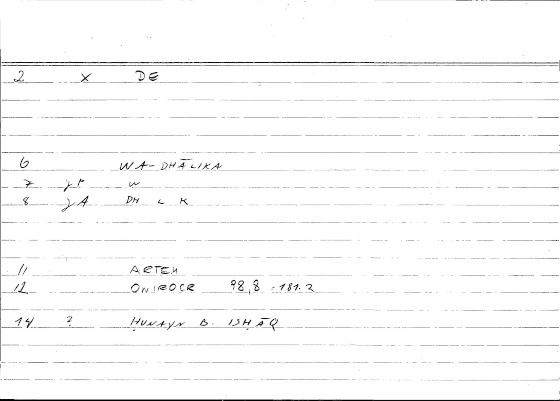 2 x DE
6 WA-DHĀLIKA
7 jP W
8 jA DH L K
11 ARTEM
12 ONIROCR 98,8 - 181.2
14 ? ḤUNAYN B. ISḤĀQ